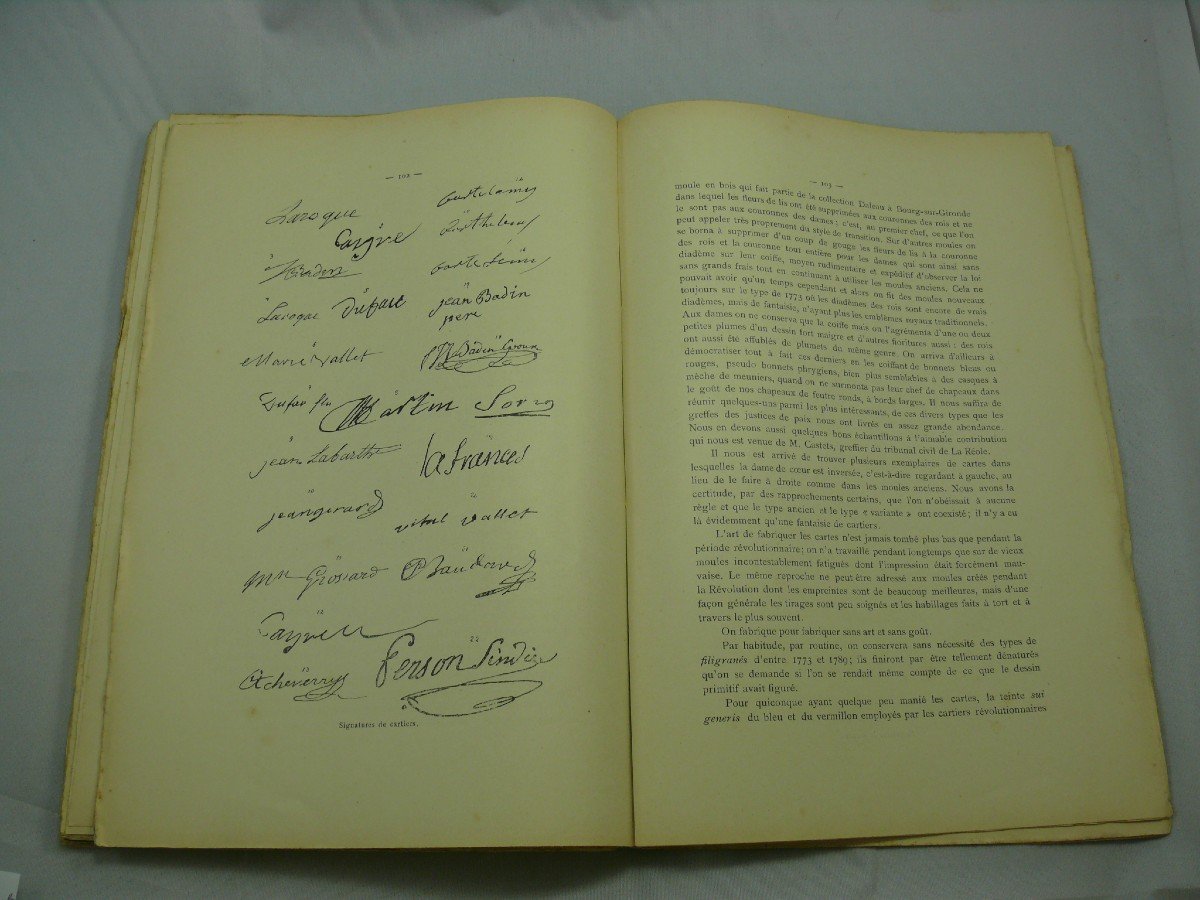 — 102 —
Laroque
Cayre
Badin
Laroque Dufau
Marie Vallet
Dufau fils
Martin Sorro
jean Labarthe
la frances
jean gerard
vital vallet
mn Grossard
P Baudard
Cayre
Etcheverry
Ferson Sindic
bartelemy
Barthelemy
bartelemi
jean Badin
pere
Badin
Signatures de cartiers.
— 103 —
moule en bois qui fait partie de la collection Daleau à Bourg-sur-Gironde
dans lequel les fleurs de lis ont été supprimées aux couronnes des rois et ne
le sont pas aux couronnes des dames ; c'est, au premier chef, ce que l'on
peut appeler très proprement du style de transition. Sur d'autres moules on
se borna à supprimer d'un coup de gouge les fleurs de lis à la couronne
des rois et la couronne tout entière pour les dames qui sont ainsi sans
diadème sur leur coiffe, moyen rudimentaire et expéditif d'observer la loi
sans grands frais tout en continuant à utiliser les moules anciens. Cela ne
pouvait avoir qu'un temps cependant et alors on fit des moules nouveaux
toujours sur le type de 1773 où les diadèmes des rois sont encore de vrais
diadèmes, mais de fantaisie, n'ayant plus les emblèmes royaux traditionnels.
Aux dames on ne conserva que la coiffe mais on l'agrémenta d'une ou deux
petites plumes d'un dessin fort maigre et d'autres fioritures aussi ; des rois
ont aussi été affublés de plumets du même genre. On arriva d'ailleurs à
démocratiser tout à fait ces derniers en les coiffant de bonnets bleus ou
rouges, pseudo bonnets phrygiens, bien plus semblables à des casques à
mèche de meuniers, quand on ne surmonta pas leur chef de chapeaux dans
le goût de nos chapeaux de feutre ronds, à bords larges. Il nous suffira de
réunir quelques-uns parmi les plus intéressants, de ces divers types que les
greffes des justices de paix nous ont livrés en assez grande abondance.
Nous en devons aussi quelques bons échantillons à l'aimable contribution
qui nous est venue de M. Castets, greffier du tribunal civil de La Réole.
Il nous est arrivé de trouver plusieurs exemplaires de cartes dans
lesquelles la dame de cœur est inversée, c'est-à-dire regardant à gauche, au
lieu de le faire à droite comme dans les moules anciens. Nous avons la
certitude, par des rapprochements certains, que l'on n'obéissait à aucune
règle et que le type ancien et le type « variante » ont coexisté ; il n'y a eu
là évidemment qu'une fantaisie de cartiers.
L'art de fabriquer les cartes n'est jamais tombé plus bas que pendant la
période révolutionnaire ; on n'a travaillé pendant longtemps que sur de vieux
moules incontestablement fatigués dont l'impression était forcément mau-
vaise. Le même reproche ne peut être adressé aux moules créés pendant
la Révolution dont les empreintes sont de beaucoup meilleures, mais d'une
façon générale les tirages sont peu soignés et les habillages faits à tort et à
travers le plus souvent.
On fabrique pour fabriquer sans art et sans goût.
Par habitude, par routine, on conservera sans nécessité des types de
filigranés d'entre 1773 et 1789 ; ils finiront par être tellement dénaturés
qu'on se demande si l'on se rendait même compte de ce que le dessin
primitif avait figuré.
Pour quiconque ayant quelque peu manié les cartes, la teinte sui
generis du bleu et du vermillon employés par les cartiers révolutionnaires